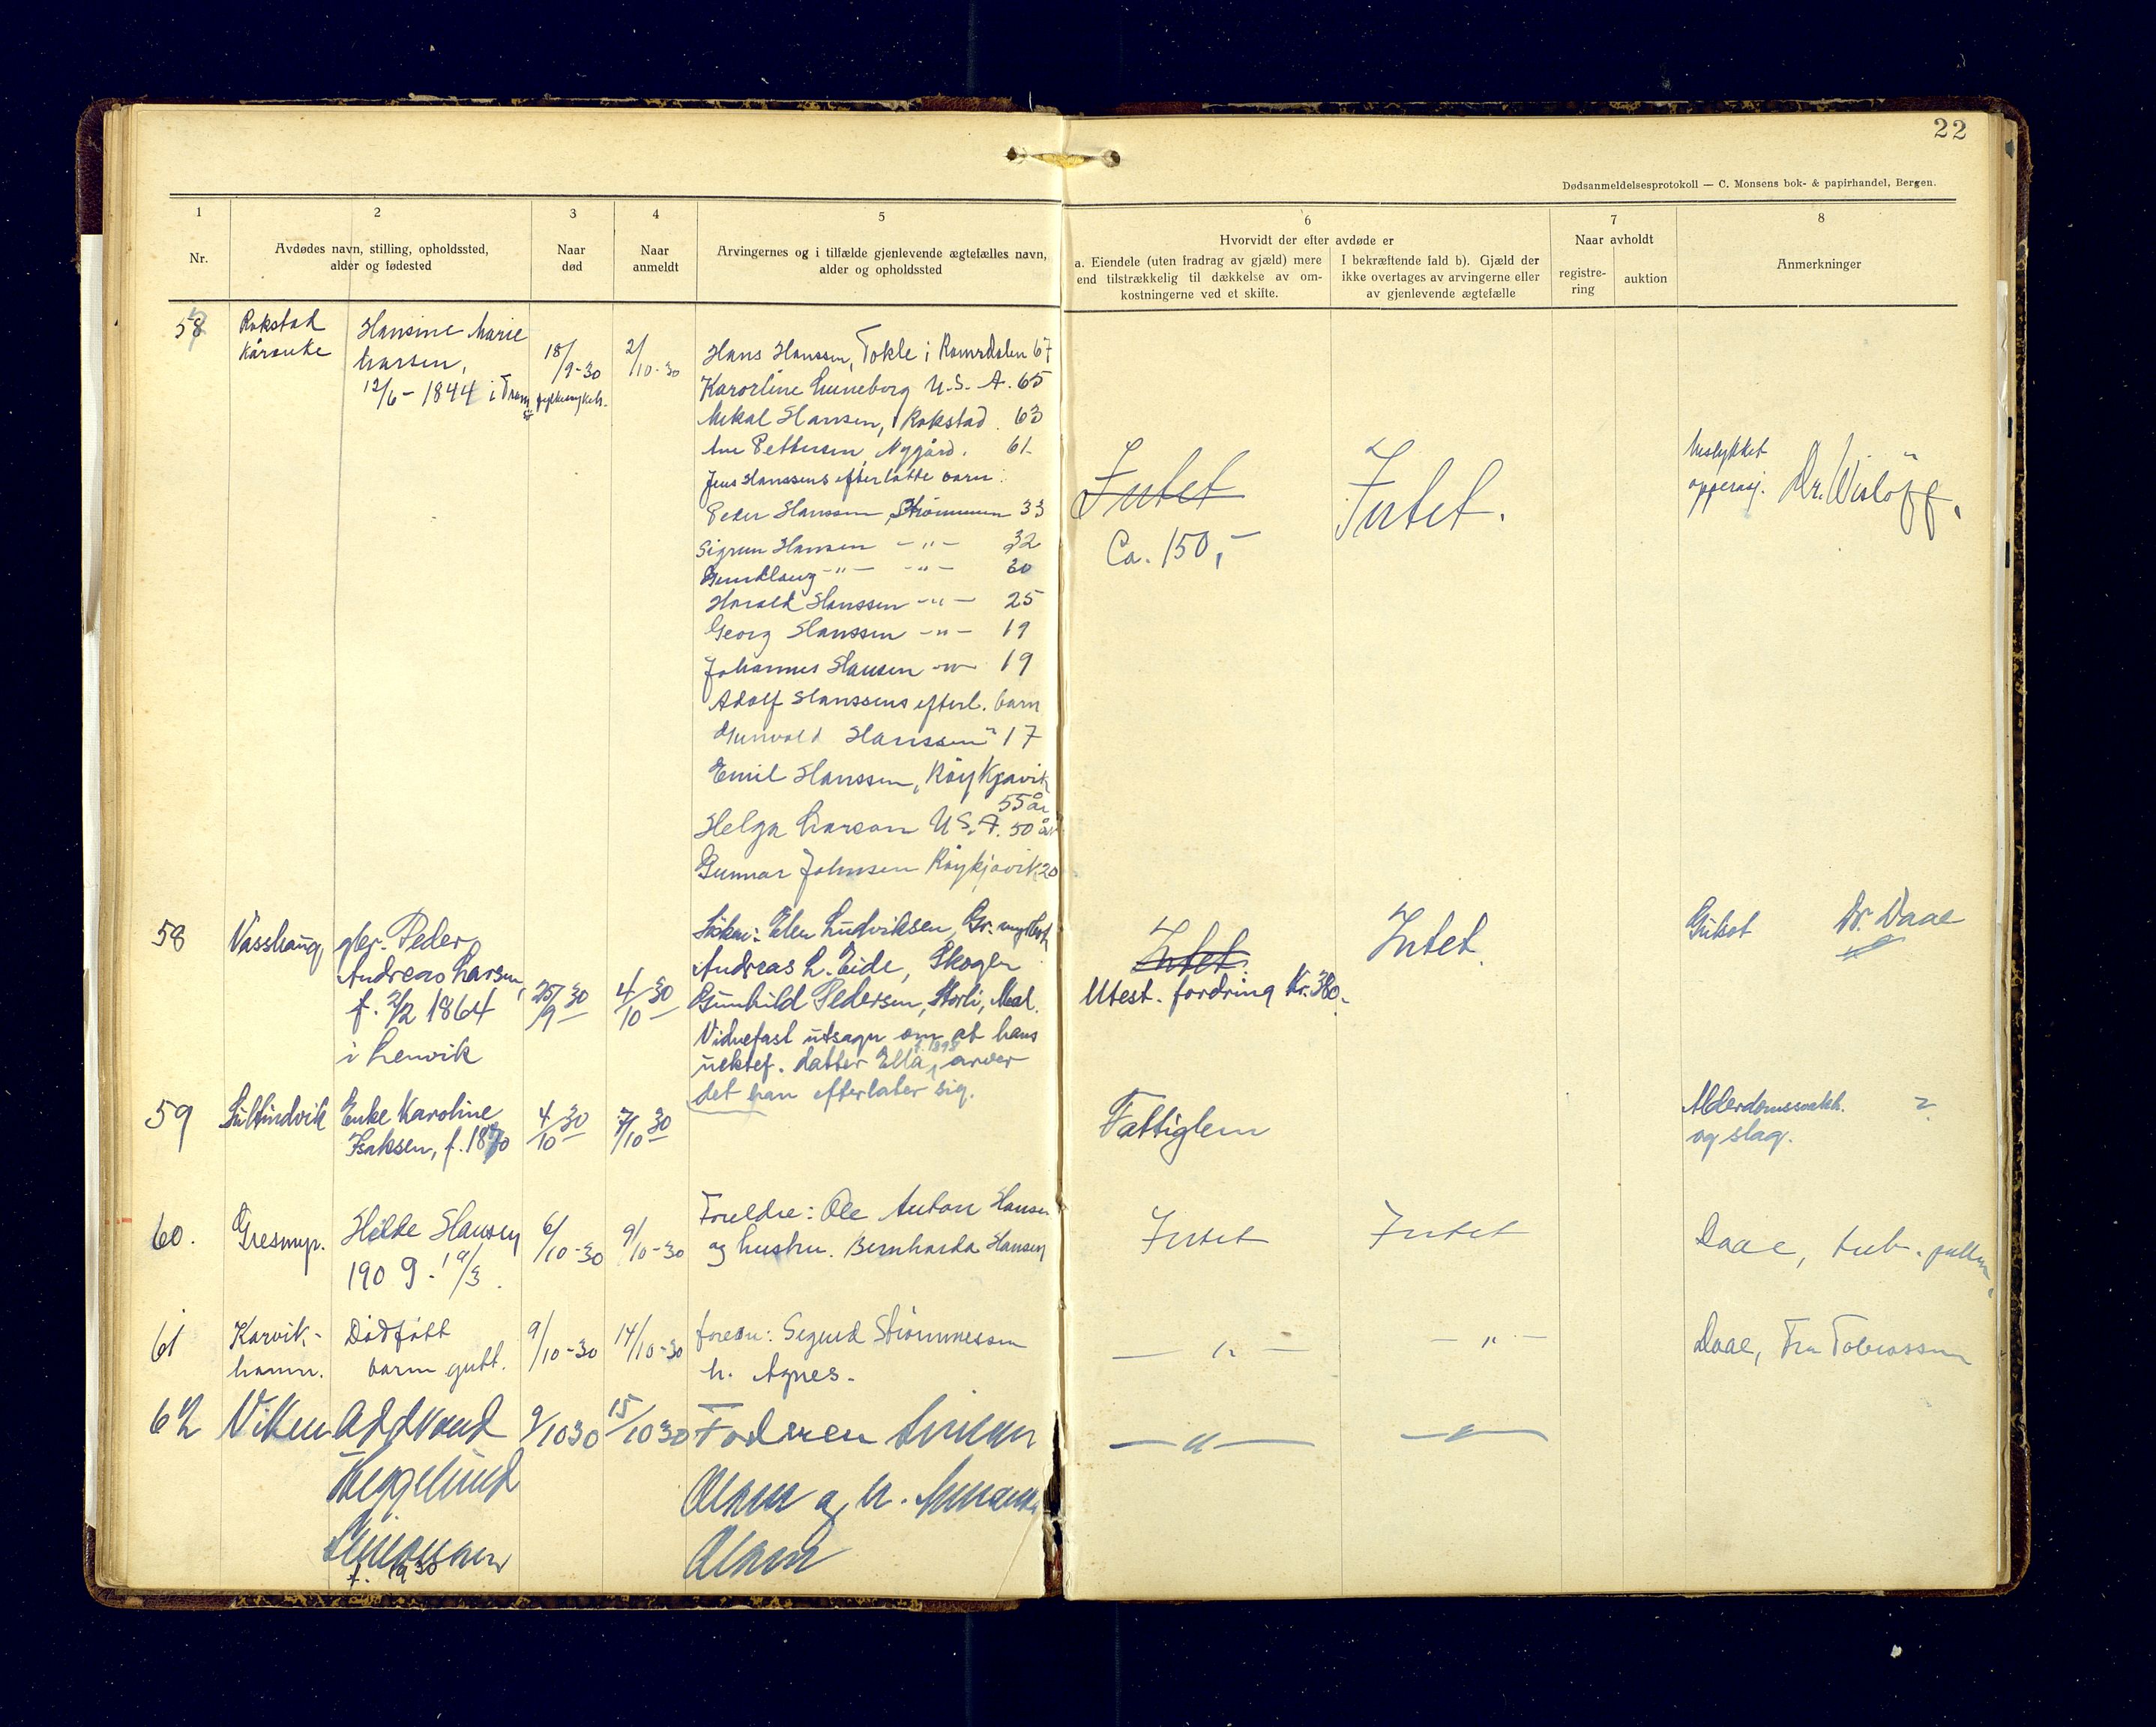 22
Dødsanmeldelsesprotokoll — C. Monsens bok- & papirhandel, Bergen.
1
Nr.
2
Avdødes navn, stilling, opholdssted,
alder og fødested
3
Naar
død
4
Naar
anmeldt
5
Arvingernes og i tilfælde gjenlevende ægtefælles navn,
alder og opholdssted
6
Hvorvidt der efter avdøde er
a. Eiendele (uten fradrag av gjæld) mere
end tilstrækkelig til dækkelse av om-
kostningerne ved et skifte.
I bekræftende fald b). Gjæld der
ikke overtages av arvingerne eller
av gjenlevende ægtefælle
7
Naar avholdt
registre-
ring
auktion
8
Anmerkninger
57
Rokstad
Kårenke
Hansine Marie
Larsen,
12/6 - 1844 i
18/9-30
2/10-30
Hans Hanssen, Tokle i Romsdalen 67
Karorline Luneborg U.S.A. 65
Mikal Hansen, Rokstad. 63
Ane Pettersen, Nygård. 61
Jens Hanssens efterlatte barn:
Peder Hanssen, Strømmen 33
Sigrun Hansen -"- 32
Gundlaug -"- -"- 30
Harald Hanssen -"- 25
Georg Hanssen -"- 19
Johannes Hansen -"- 19
Adolf Hanssens efterl. barn
Gunvald Hanssen 17
Emil Hanssen, Røykjavik
55 år
Helga Larson U.S.A. 50 år
Gunnar Johnsen Røykjavik 20
Intet
Ca. 150,-
Intet.
Mislykket
opperasj. Dr. Wisløff.
58
Vasshaug
gbr. Peder
Andreas Larsen,
f. 2/2 1864
i Lenvik
25/9 30
4/10 30
Søken: Elen Ludviksen, Gr.
Andreas L. Eide, Skogen
Gunhild Pedersen, Storli, Mal.
Vidnefast utsagn om at hans
uektef. datter Ella, f. 1898 arver
det han efterlater sig.
Intet.
Utest. fordring Kr. 380.-
Intet.
Gulsot Dr. Daae
59
Sultindvik
Enke Karoline
Isaksen, f. 18
4/10 30
7/10 30
Fattiglem
Alderdomssvakh.
og slag.
?
60.
Gresmyr.
Hilde Hansen
1909 - 19/3.
6/10-30
9/10-30
Foreldre: Ole Anton Hansen
og hustru. Bernharda Hansen
Intet
Intet
Daae, tub. pulm.
61
Karvik-
hamn.
Dødfött
barn gutt.
9/10-30
14/10-30
foreldr: Sigurd Strømmesen
h. Agnes.
- " -
- " -
Daae, Fru Tobiassen
62
Viken
Oddvard
Heggelund
Simonsen
f. 1930
9/10 30
15/10 30
Faderen Simon
Olsen og h.
Olsen
- " -
- " -